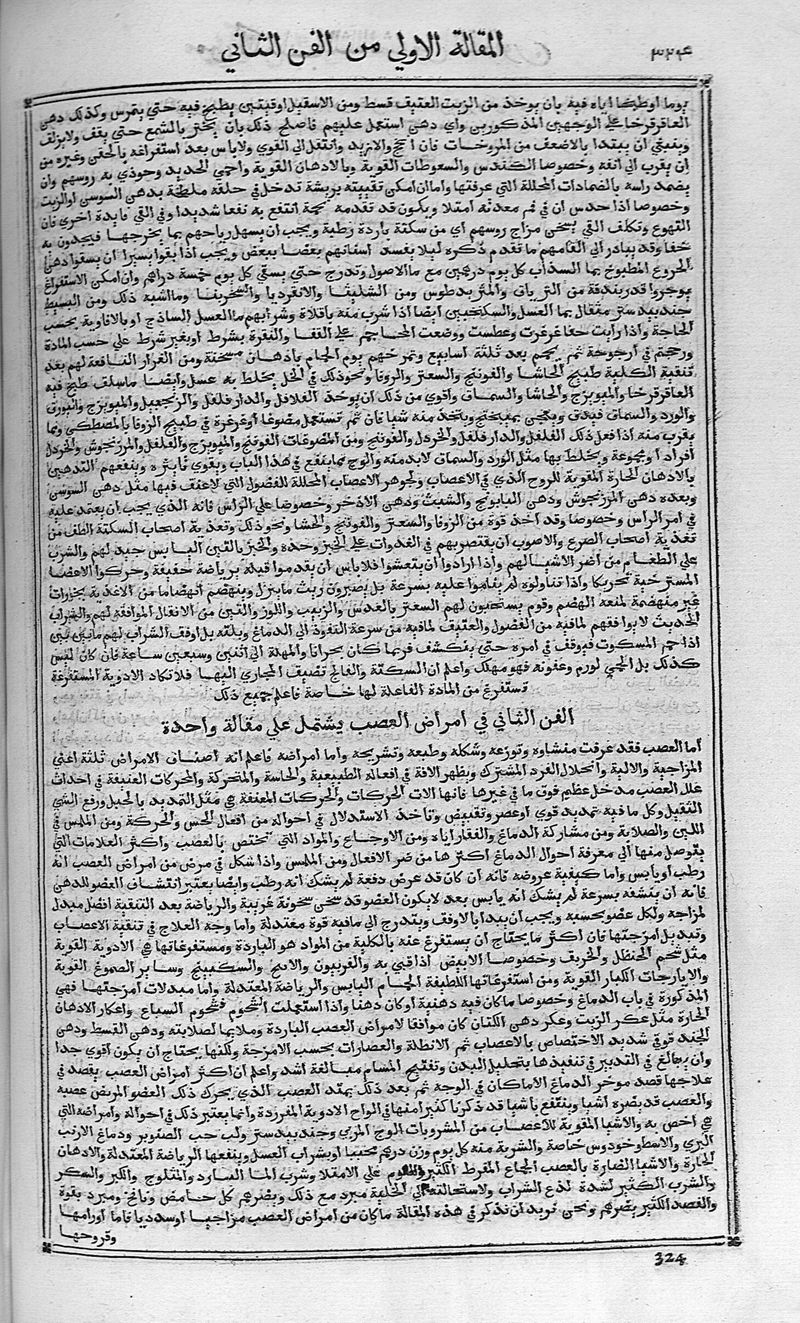 المقالة الاولي من الفن الثاني
٣٢٤
يوما او طبخا اياه فيه بان يوخذ من الزيت العتيق قسط ومن الاسقيل اوقيتين يطبخ فيه حتي يتمرس وكذلك دهن
العاقرقرحا علي الوجهين المذكورين واي دهن استعمل عليهم فاصلح ذلك بان يخثر بالشمع حتي يقف ولا يزلف
وينبغي ان يبتدا بالاضعف من المروخات فان انجح والا يزيد وانتقل الي القوي ولاباس بعد استفراغه بالحقن وغيره من
ان يقرب الي انفه وخصوصا الكندس والسعوطات القوية وبالادهان القوية واحمي الحديد وحوذي به روسهم وان
يضمد راسه بالضمادات المحللة التي عرفتها واما ان امكن تقييته بريشة تدخل في حلقه ملطخة بدهن السوسن او الزيت
وخصوصا اذا حدس ان في فم معدته امتلا ويكون قد تقدمه تخمة انتفع به نفعا شديدا وفي القي فايدة اخري فان
القهوع وتكلف القي يسخن مزاج روسهم اي من سكتة باردة رطبة ويجب ان يسهل رياحهم بما يخرجها فيجدون به
خفا وقد يبادر الي القامهم ما تقدم ذكره ليلا يفسد اسنانهم بعضا ببعض ويجب اذا بقوا يسيرا ان يسقوا دهن
الخروع المطبوخ بما السذاب كل يوم درهمين مع ما الاصول وتدرج حتي يسقي كل يوم خمسة دراهم وان امكن الاستفراغ
يوجروا قدر بندقة من الترياق والمثريدطوس ومن الشليثا والانقرديا والشجرينا وما اشبه ذلك ومن البسيط
جندبيدستر مثقال بما العسل والسكنجبين ايضا اذا شرب منه باقلاة وشرابهم ما العسل الساذج او بالافاوية بحسب
الحاجة واذا رايت خفا غرغرت وعطست ووضعت المحاجم علي القفا والنقرة بشرط او بغير شرط علي حسب المادة
ورجحتهم في ارجوحة ثم يحمهم بعد ثلثة اسابيع وتمرخهم يوم الحمام بادهان مسخنة ومن الغراغر النافعة لهم بعد
تنقية الكلية طبيخ الحاشا والفوتنج والسعتر والزوفا ونحو ذلك في الخل يخلط به عسل وايضا ما سلف طبخ فيه
العاقرقرحا والميويزج والحاشا والسماق واقوي من ذلك ان يوخذ الفلافل والدار فلفل والزنجبيل والميويزج والبورق
والورد والسماق فيدق ويعجن بميبختج ويتخذ منه شيا فان ثم تستعمل مضوغا او غرغرة في طبيخ الزوفا بالمصطكي وما
يقرب منه اذا فعل ذلك الفلفل والدار فلفل والخردل والفوتنج ومن المضوغات الفوتنج والميويزج والفلفل والمرزنجوش والخردل
افرادا ومجموعة ويخلط بها مثل الورد والسماق لابد منه والوج مما ينفع في هذا الباب ويقوي تاثيره وينفعهم التدهين
بالادهان الحارة المقوية للروح الذي في الاعصاب ولجوهر الاعصاب المحللة للفضول التي لاعنف فيها مثل دهن السوسن
وبعده دهن المرزنجوش ودهن البابونج والشبث ودهن الاذخر وخصوصا علي الراس فانه الذي يجب ان يعتمد عليه
في امر الراس وخصوصا وقد اخذ قوة من الزوفا والسعتر والفوتنج والحشا ونحو ذلك وتغذية اصحاب السكتة الطف من
تغذية اصحاب الصرع والاصوب ان يقتصر بهم في الغدوات علي الخبز وحده والخبز بالتين اليابس جيد لهم والشرب
علي الطعام من اضر الاشيا لهم واذا ارادوا ان يتعشوا فلاباس ان يقدموا قبله برياضة خفيفة وحركوا الاعضا
المسترخية تحريكا واذا تناولوه لم يناموا عليه بسرعة بل يصبرون ريث ما ينزل وينهضم انهضاما من الاغذية بخارات
غير منهضمة لمنعه الهضم وقوم يستحبون لهم السعتر بالعدس والزبيب واللوز والتين من الانقال الموافقة لهم والشراب
الحديث لا يوافقهم لما فيه من الفضول والعتيق لما فيه من سرعة النفوذ الي الدماغ وبلته بل اوفق الشراب لهم ما بين بين
اذا حم المسكوت فيوقف في امره حتي ينكشف فربما كان بحرانا والمهلة الي اثنين وسبعين ساعة فان كان ليس
كذلك بل الحمي لورم وعفونه فهو مهلك واعلم ان السكتة والفالج تضيق المجاري اليهما فلا تكاد الادوية المستفرغة
تستفرغ من المادة الفاعلة لها خاصة فاعلم جميع ذلك
الفن الثاني في امراض العصب يشتمل علي مقالة واحدة
اما العصب فقد عرفت منشاوه وتوزعه وشكله وطبعه وتشريحه واما امراضه فاعلم انه اصناف الامراض ثلثة اعني
المزاجية والالية وانحلال الفرد المشترك ويظهر الافة في افعاله الطبيعية والحاسة والمتحركة والمحركات العنيفة في احداث
علل العصب مدخل عظيم فوق ما في غيرها فانها الات الحركات والحركات المعنفة هي مثل التمديد بالحبل ورفع الشي
الثقيل وكل ما فيه تمديد قوي او عصر وتقبيض وتاخذ الاستدلال في احواله من افعال الحس والحركة ومن الملمس في
اللين والصلابة ومن مشاركة الدماغ والفقار اياه ومن الاوجاع والمواد التي تختص بالعصب واكثر العلامات التي
يتوصل منها الي معرفة احوال الدماغ اكثرها من ضر الافعال ومن الملمس واذا شكل في مرض من امراض العصب انه
رطب او يابس واما كيفية عروضه فانه ان كان قد عرض دفعة لم يشك انه رطب وايضا يعتبر انتشاف العضو للدهن
فانه ان ينشفه بسرعة لم يشك انه يابس بعد لا يكون العضو قد سخن سخونة غريبة والرياضة بعد التنقية افضل مبدل
لمزاجه ولكل عضو بحسبه ويجب ان يبدا بالاوفق ويتدرج الي ما فيه قوة معتدلة واما وجه العلاج في تنقية الاعصاب
وتبديل امزجتها فان اكثر ما يحتاج ان يستفرغ عنه بالكلية من المواد هو الباردة ومستفرغاتها هي الادوية القوية
مثل شحم الحنظل والخربق وخصوصا الابيض اذا قيي به والفربيون والاشج والسكبينج وساير الصموغ القوية
والايارجات الكبار القوية ومن استفرغاتها اللطيفة الحمام اليابس والرياضة المعتدلة واما مبدلات امزجتها فهي
المذكورة في باب الدماغ وخصوصا ما كان فيه دهنية او كان دهنا واذا استعملت الشحوم فشحوم السباع واعكار الادهان
الحارة مثل عكر الزيت وعكر دهن الكتان كان موافقا لامراض العصب الباردة وملاينها لصلابته ودهن القسط ودهن
الحندقوقي شديد الاختصاص بالاعصاب ثم الانطلة والعصارات بحسب الامزجة ولكنها يحتاج ان يكون اقوي جدا
وان يبالغ في التدبير في تنفيذها بتحليل البدن وتفتيح المسام مبالغة اشد واعلم ان اكثر امراض العصب يقصد في
علاجها قصد موخر الدماغ الا ما كان في الوجه ثم بعد ذلك يمتد العصب الذي يحرك ذلك العضو المريض عصبه
والعصب قد يضره اشيا وينتفع باشيا قد ذكرنا كثيرا منها في الواح الادوية المفردة وانما يعتبر ذلك في احواله وامراضه التي
هي اخص به والاشيا المقوية للاعصاب من المشروبات الوج المربي وجندبيدستر ولب حب الصنوبر ودماغ الارنب
البري والاسطوخودوس خاصة والشربة منه كل يوم وزن درهم محببا او بشراب العسل وينفعها الرياضة المعتدلة والادهان
الحارة والاشيا الضارة بالعصب الجماع المفرط الكثير والنوم علي الامتلا وشرب الما البارد والمثلوج والكبر والسكر
والشرب الكثير لشدة لذع الشراب ولاستحالته الي الخلية مبرد مع ذلك ويضرهم كل حامض ونافخ ومبرد بقوة
والفصد الكثير يضرهم ونحن نريد ان نذكر في هذه المقالة ما كان من امراض العصب مزاجيا او سدديا فاما اورامها
وقروحها
324